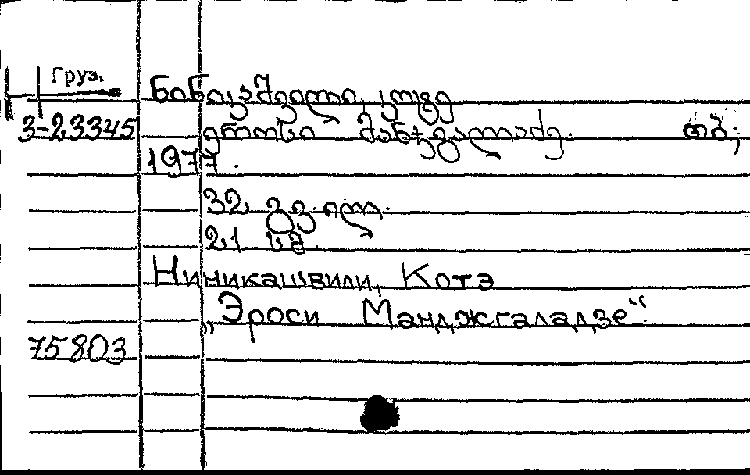 Груз.
ნინიკაშვილი, კოტე
3-23345 ეროსი მანჯგალაძე. თბ.,
1977.
32 გვ. ილ.
21 სმ.
Ниникашвили, Котэ
„Эроси Манджгаладзе“.
75803